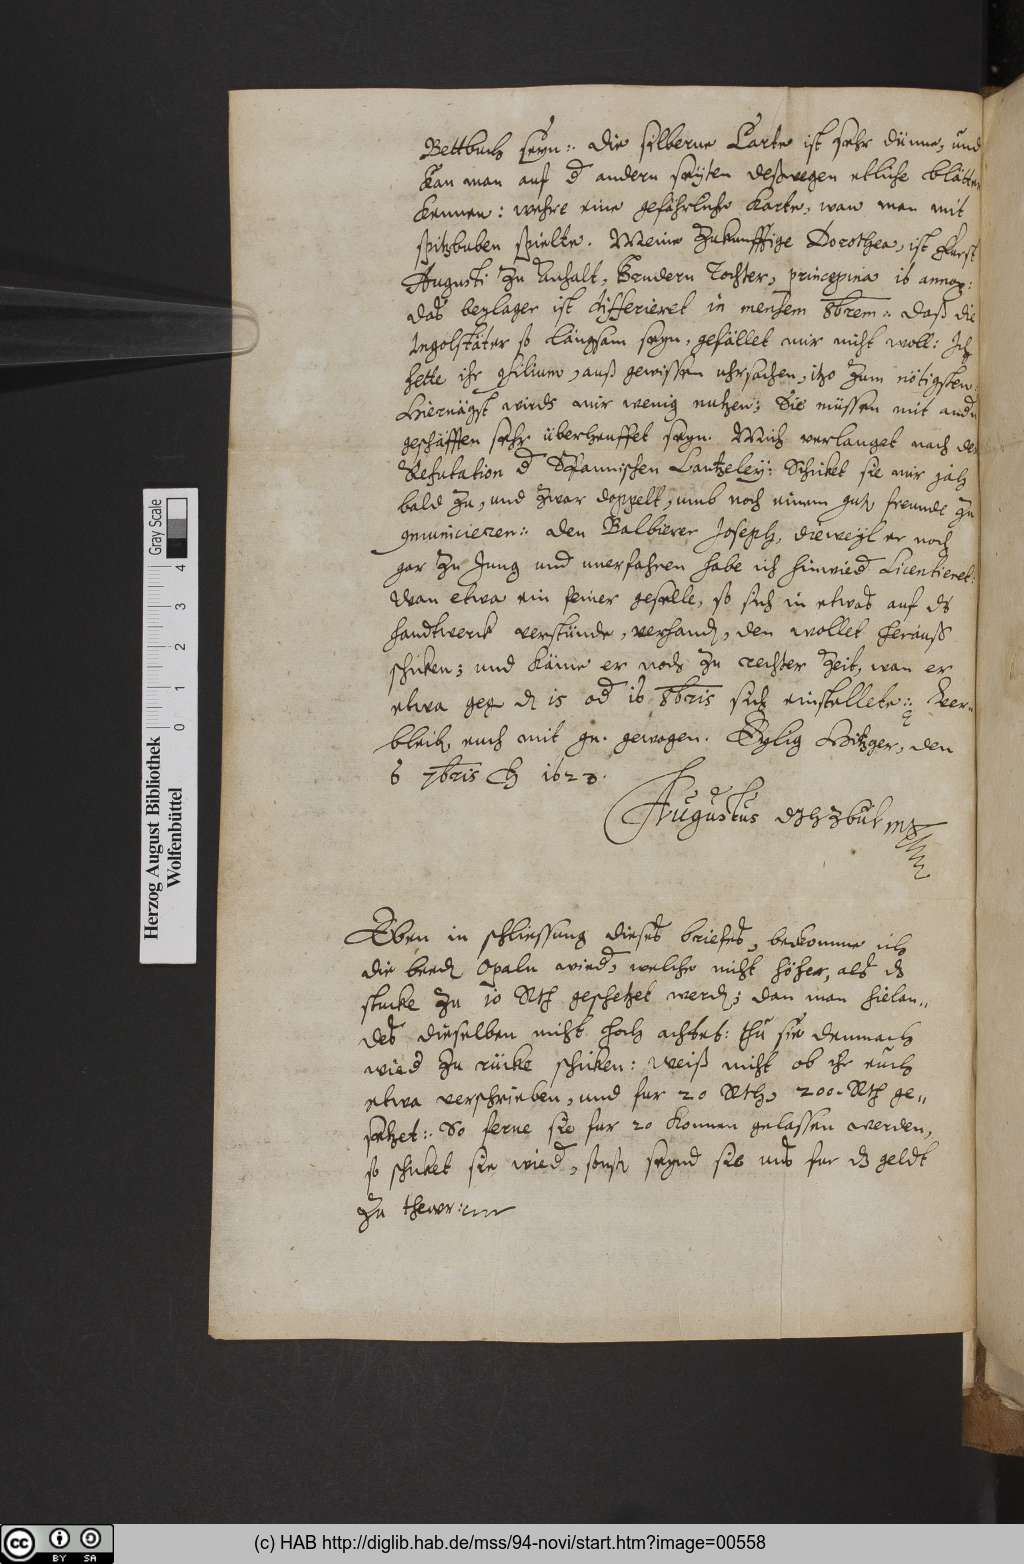 Bettbuch seyn: die silberne Carte ist sehr dünne, und
kan man auf d andern seyten deßwegen etliche blätter
kennen: wehre eine gefährliche Karte, wan man mit
spitzbuben spielte. Meine Zukunfftige Dorothea, ist Fürst
Augusti zu Anhalt, Brudern Tochter, 16 annor:
das beylager ist differieret in mensem 8brem: daß die
Ingolstäter so langsam seyn, gefället mir nicht woll: Ich
hette ihr auß gewissen uhrsachen, itzo zum nötigsten:
Hiernägst wirds mir wenig nutzen; Sie müssen mit andn
geschäfften sehr überheuffet seyn. Mich verlanget nach der
Refutation d Spannischen Cantzeley: Schicket sie mir
bald zu, und zwar doppelt, umb noch einem freunde zu
den Balbierer Joseph, dieweyl er noch
gar zu Jung und unerfahren habe ich hinwied Licentieret.
Wan etwa ein feiner geselle, so sich in etwas auf ds
handtwerck verstünde, verhand, den wollet herauß
schicken; und käme er noch zu rechter Zeit, wan er
etwa geg d 15 od 16 8bris sich einstellete: Ver-
bleib, euch mit gn. gewogen. Eylig Hitzger, den
6 7bris 1623.
Augustus DHZBUL mpp
Eben in schliessung dieses briefes, bekomme ich
die beed Opaln wied, welche nicht höher, als ds
stucke zu 10 Rth geschetzet werd; dan man hielan-
des dieselben nicht hoch achtet: thu sie demnach
wied zu rücke schicken: weiß nicht ob ihr euch
etwa verschrieben, und fur 20 Rth, 200. Rth ge-
setzet: So ferne sie fur 20 konnen gelassen werden,
so schicket sie wied, sonst seynd sie uns fur ds geldt
zu thewr:
Herzog August Bibliothek
Wolfenbüttel
0 1 2 3 4
Gray Scale
cc BY SA
(c) HAB http://diglib.hab.de/mss/94-novi/start.htm?image=00558